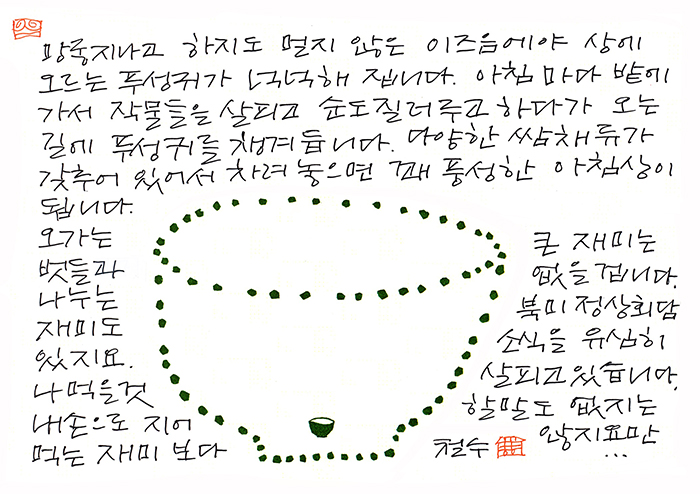 망종지나고 하지도 멀지 않은 이즈음에야 상에
오르는 푸성귀가 넉넉해 집니다. 아침마다 밭에
가서 작물들을 살피고 순도 질러주고 하다가 오는
길에 푸성귀를 챙겨둡니다. 다양한 쌈채류가
갖추어 있어서 차려 놓으면 꽤 풍성한 아침상이
됩니다.
오가는
벗들과
나누는
재미도
있지요.
나 먹을 것
내손으로 지어
먹는 재미 보다
큰 재미는
없을 겁니다.
북미정상회담
소식을 유심히
살피고 있습니다.
할말도 없지는
않지요만
...
철수